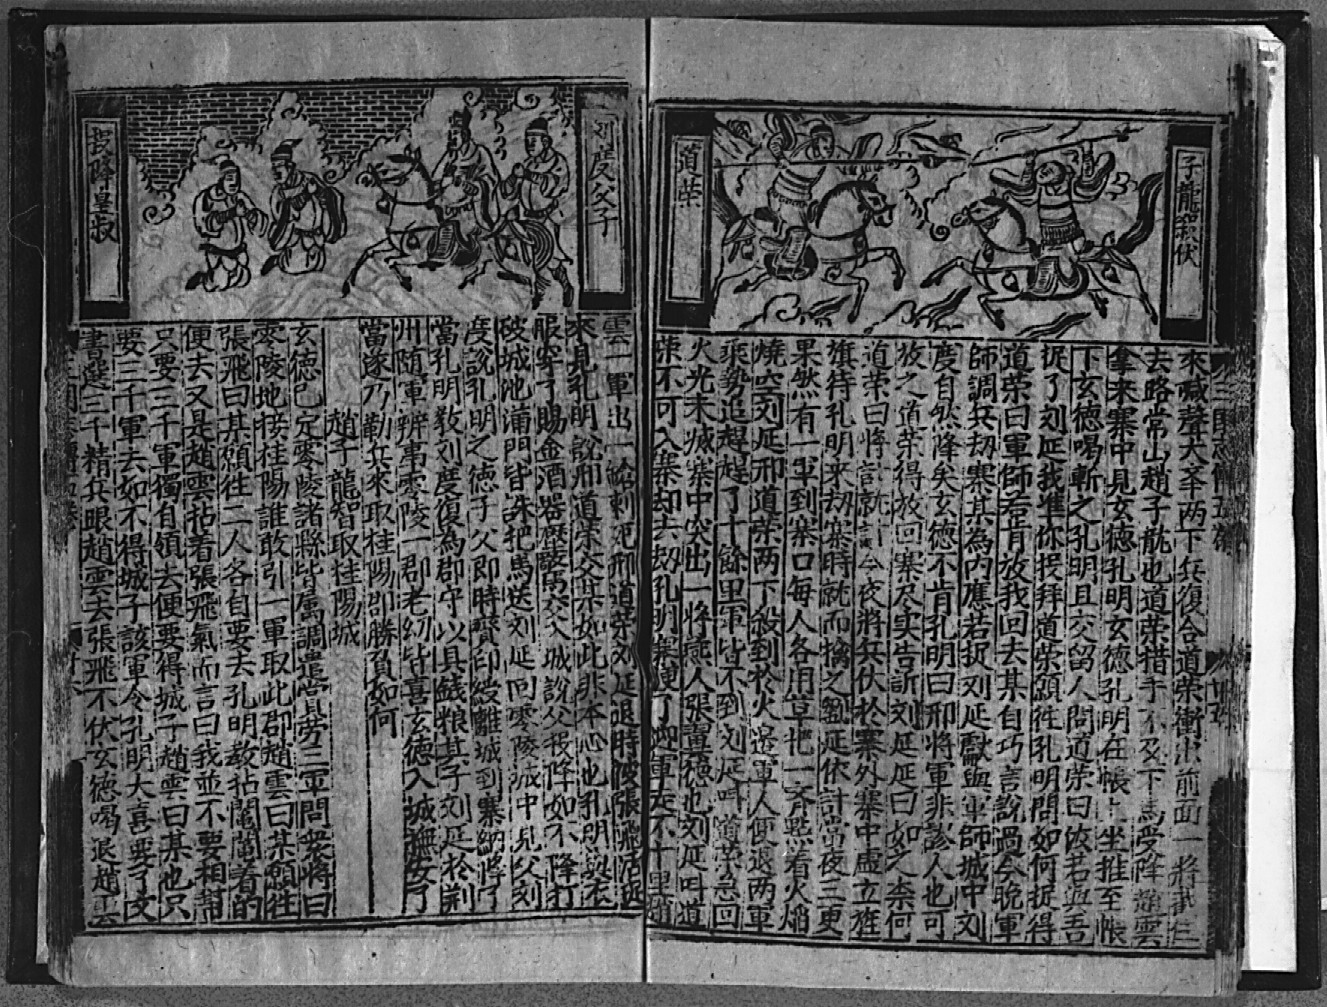 子龍智伏
道榮
來喊聲大奉两下兵復合道榮衝出前面一將截住
去路常山趙子龍也道榮措手不及下馬受降趙雲
拿來寨中見玄德孔明玄德孔明在帳上坐推至帳
下玄德喝斬之孔明且交留人問道榮曰你若與吾
捉了刘延我準你投拜道榮願往孔明問如何捉得
道榮曰軍師若肯放我回去某自巧言說過今晚軍
師調兵刼寨某為內應若捉刘延獻與軍師城中刘
度自然降矣玄德不肯孔明曰邢將軍非謬人也可
放之道榮得放回寨尽实告訴刘延延曰如之柰何
道榮曰將計就計今夜將兵伏於寨外寨中虛立旌
旗待孔明來刼寨時就而擒之劉延依計當夜三更
果然有一軍到寨口每人各用草把一齐點着火焰
燒空刘延邢道榮两下殺到放火遣軍人便退两軍
乘勢追趕趕了十餘里軍皆不到刘延叫道榮急回
火光未滅寨中突出一將燕人張翼德也刘延叫道
荣不可入寨却去刼孔明寨便了迎軍走不十里趙
刘度父子
投降皇叔
雲一軍出一鎗刺死邢道荣刘延退時被張飛活挺
來見孔明說邢道荣交某如此非本心也孔明與衣
服穿了賜金酒器壓驚交父城說父投降如不降打
破城池滿門皆誅把馬送刘延回零陵城中見父刘
度說孔明之德子父即時賫印綬離城到寨納將了
當孔明教刘度復為郡守以具餞粮其子刘延於荆
州随軍辨事零陵一郡老幼皆喜玄德入城撫安了
當遂乃勒兵來取桂陽郡勝負如何
趙子龍智取桂陽城
玄德已定零陵諸縣皆属調遣賞勞三軍問衆將曰
零陵地接桂陽誰敢引一軍取此郡趙雲曰某願往
張飛曰某願往二人各自要去孔明教拈鬮鬮着的
便去又是趙雲拈着張飛氣而言曰我並不要相幫
只要三千軍獨自領去便要得城子趙雲曰某也只
要三千軍去如不得城子該軍令孔明大喜要了文
書選三千精兵跟趙雲去張飛不伏玄德喝退趙雲